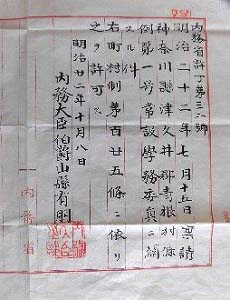 内務省許丁第三六號
明治二十二年七月十五日稟請
神奈川縣津久井郡青根村條
例第一号常設學務委員ニ關
スル件
右町村制第百廿五條ニ依リ
之ヲ許可ス
明治廿二年十月八日
内務大臣伯爵山縣有朋
内務省